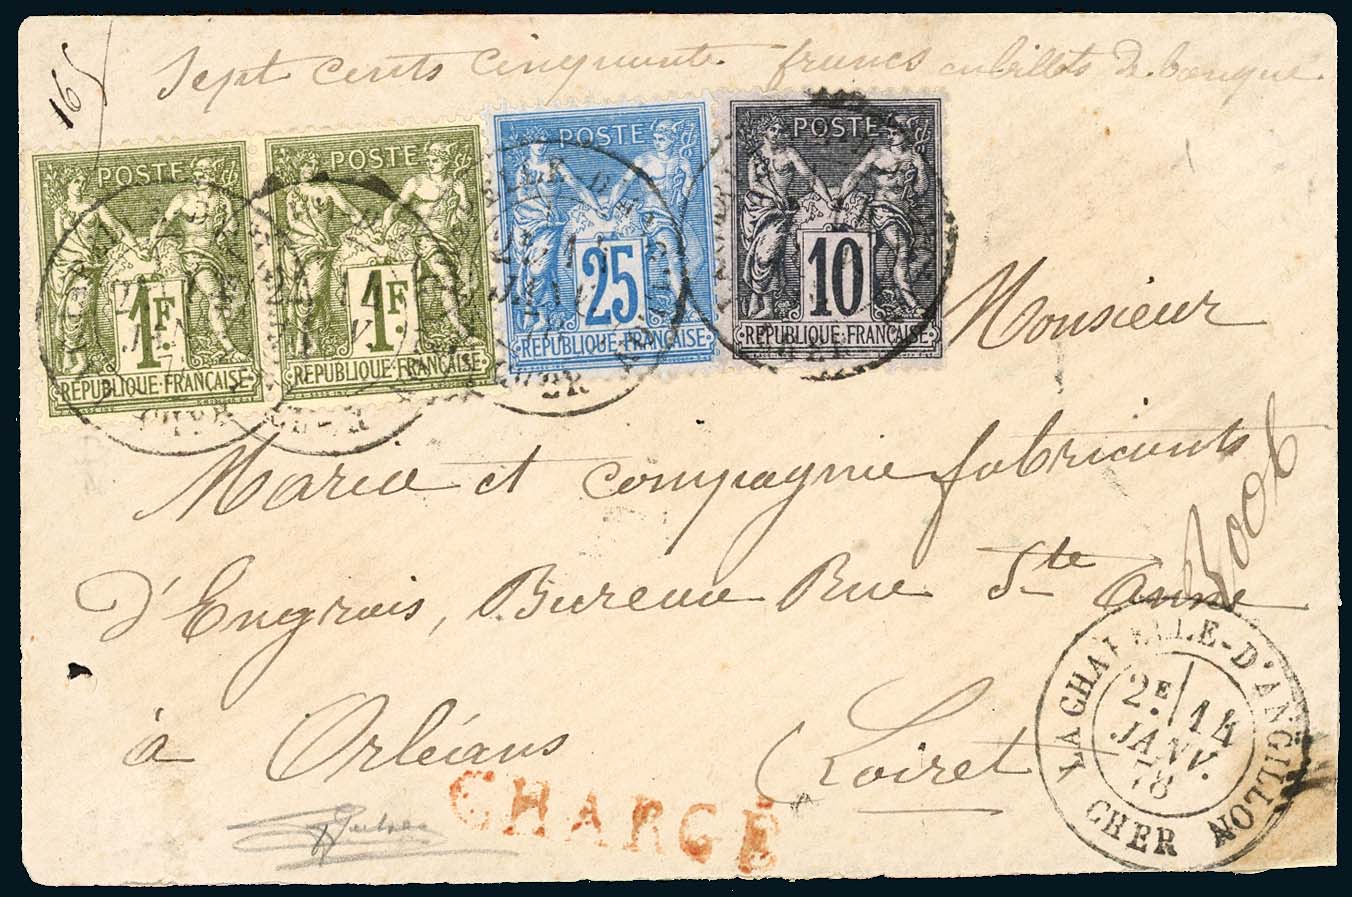 Sept cents cinquante francs en billets de banque
165
POSTE
1F.
REPUBLIQUE FRANÇAISE
POSTE
1F.
REPUBLIQUE FRANÇAISE
POSTE
25
REPUBLIQUE FRANÇAISE
POSTE
10
REPUBLIQUE FRANÇAISE
CHER
Monsieur
Marie et compagnie fabricants
D'Engrais, Bureau Rue Ste Anne
à Orléans
(Loiret
CHARGÉ
LA CHAPELLE-D'ANGILLON
2E 14
JANV.
78
CHER